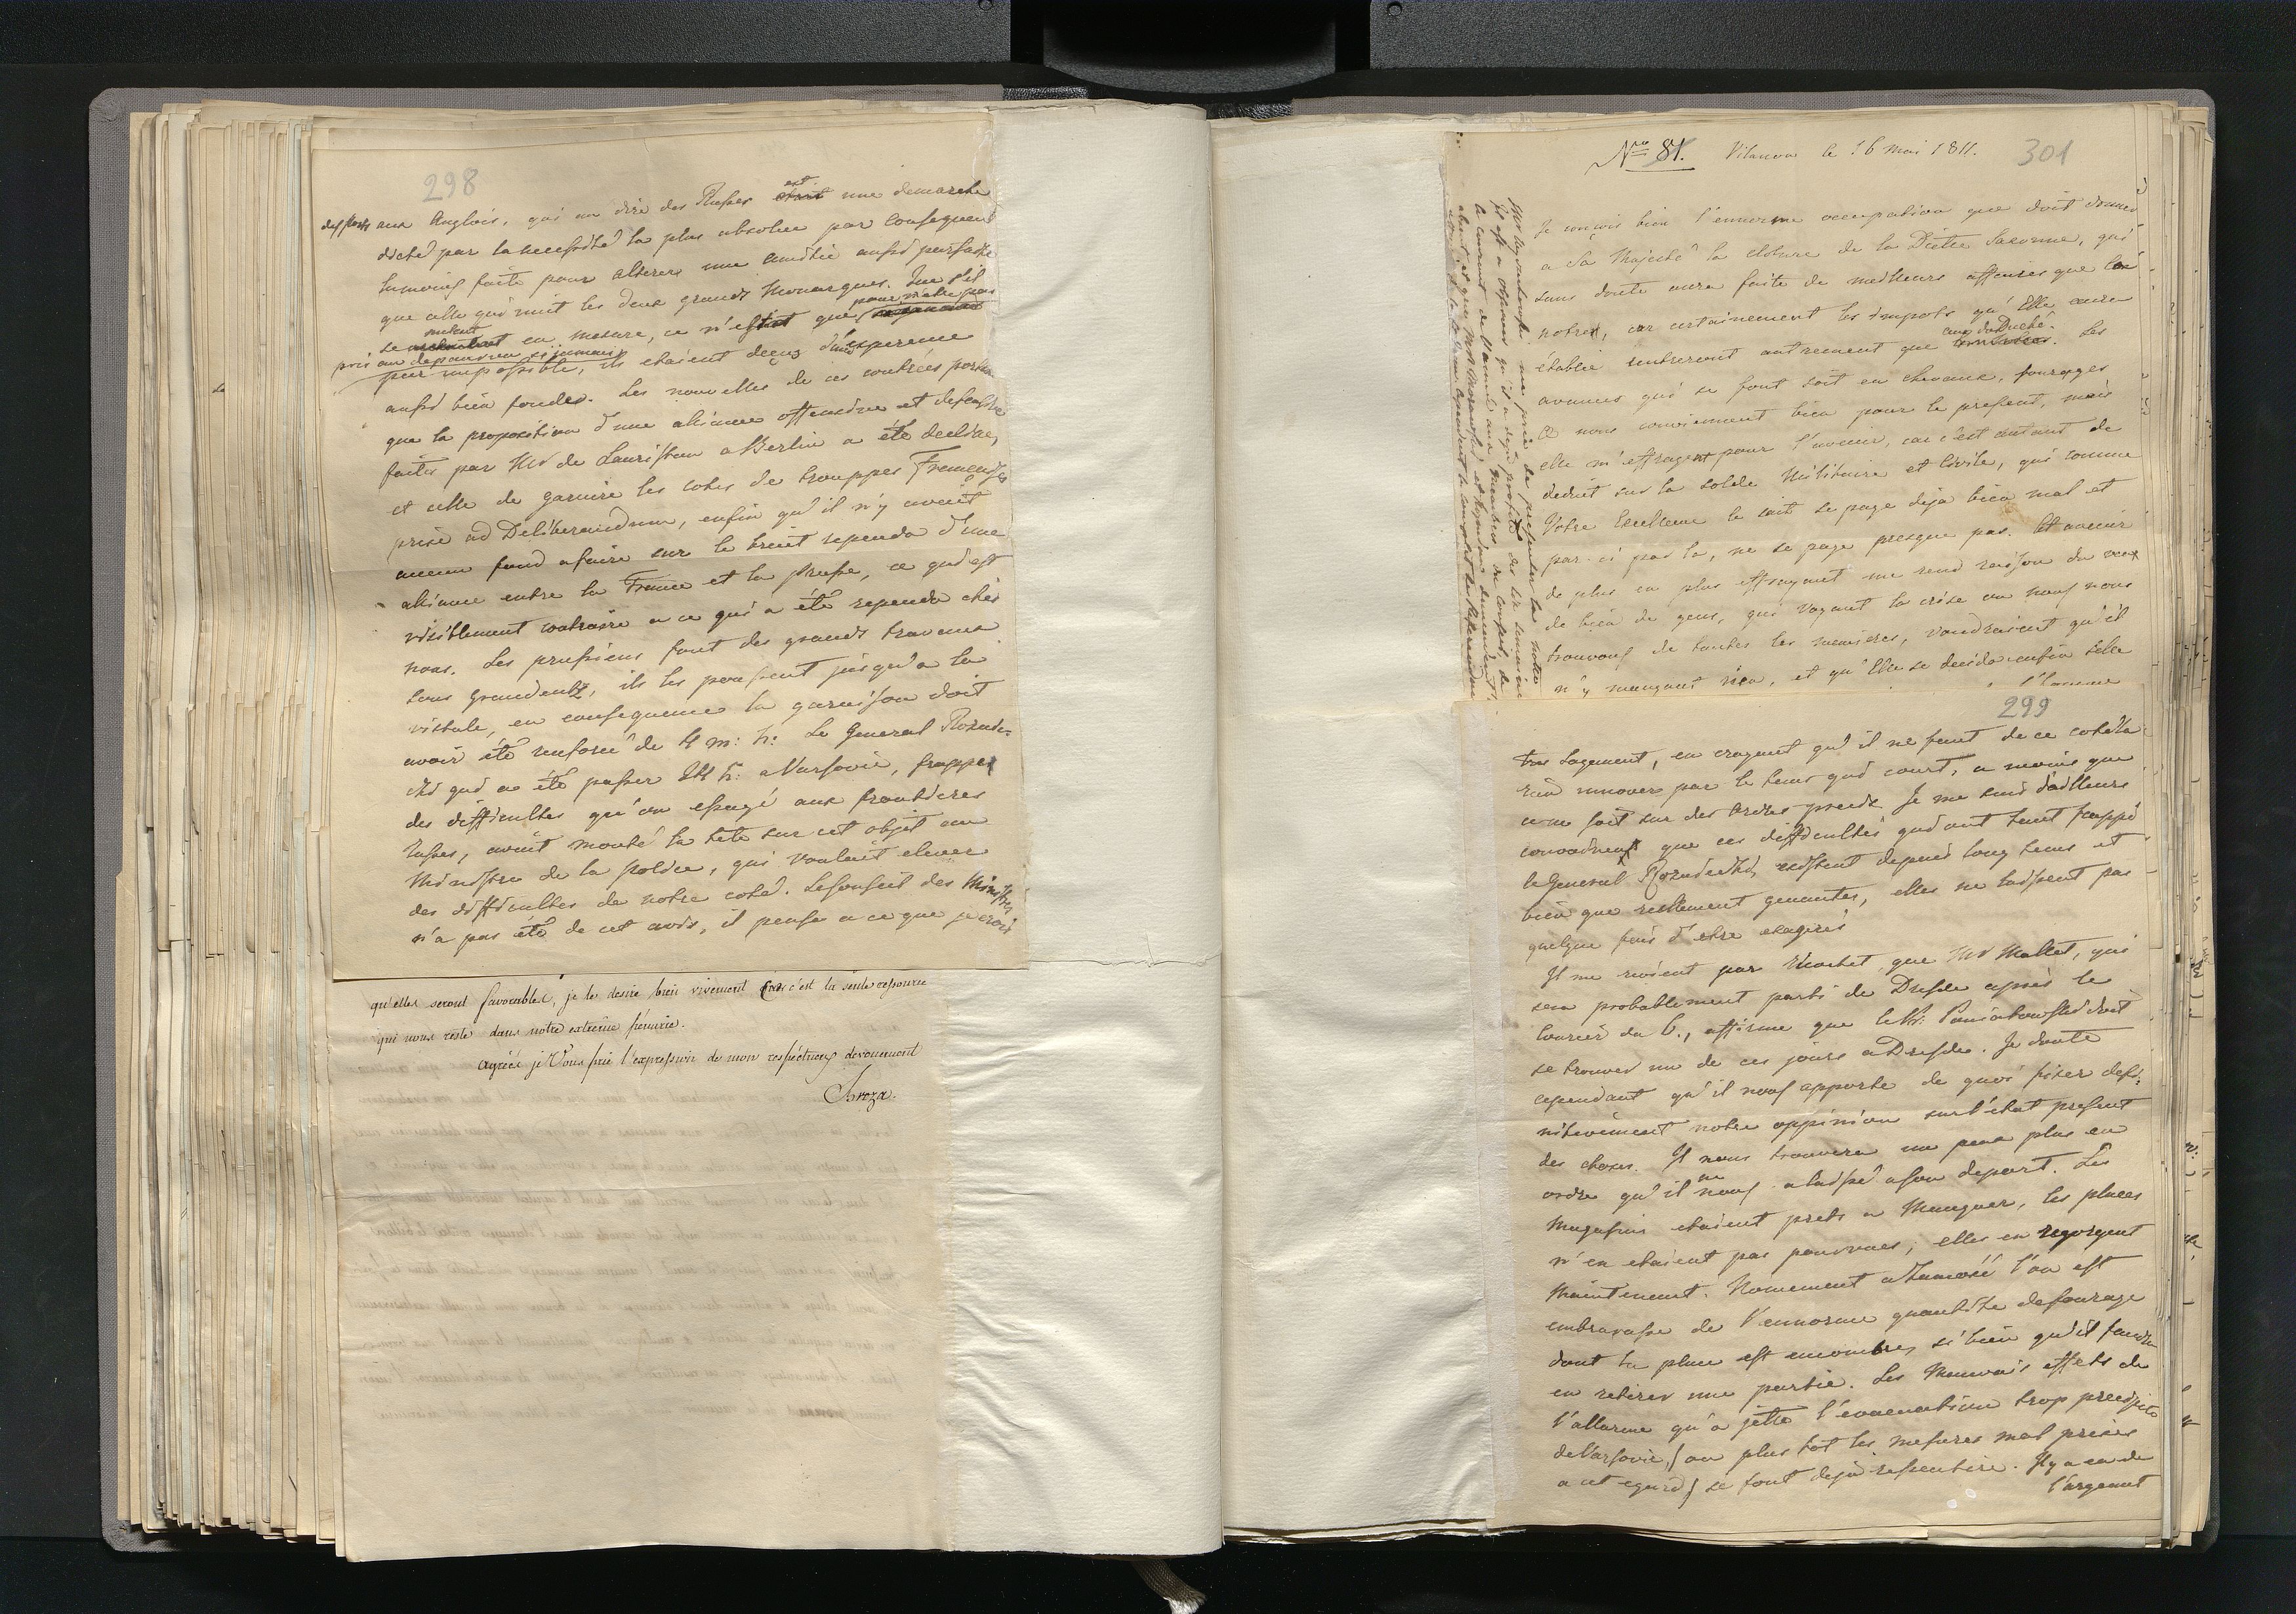 298
des ports aux Anglois, qui au dire des Russes est une demarche
dicté par la necessité la plus absolue par consequent
que celle qui unit les deux grands Monarques. Que s'il
se mettent en mesure, ce n'est que pour n'etre pas
pris au depourvu si jamais
par impossible, ils etaient deçus d'une esperence
aussi bien fondée. Les nouvelles de ces contrées portent
que la proposition d'une aliance offensive et defensive
faite par Mr de Lauriston a Berlin a été declinée,
et celle de garnire les cotes de trouppes Françoises
prise ad Deliberandum, enfin qu'il n'y avait
aucun fond a faire sur le bruit rependu d'une
aliance entre la France et la Prusse, ce qui est
visiblement contraire a ce qui a été rependu chés
nous. Les prussiens font des grands travaux
sous Graudentz, ils les poussent jusqu'a la
vistule, en consequence la garnison doit
avoir été renforcé de 4 m: h: Le General Roznie=
cki qui a été passer a Varsovie, frappé
des difficultes qu'on essayé aux frontieres
Russes, avait monté la tete sur cet objet au
Ministre de la police, qui voulait elever
des difficultes de notre coté. Le Conseil des Ministres
n'a pas été de cet avis, il pense a ce que je crois
qu'elles seront favorables, je le desire bien vivement car c'est la seule ressource
qui nous reste dans notre extrême pénurie.
Agréés je Vous prie l'expression de mon respectueux devouement
Breza.
No 81. Vilanow le 16 Mai 1811. 301
Je conçois bien l'ennorme occupation que doit donner
a Sa Majesté la cloture de la Diette Saxonne, qui
sans doute aura faite de meilleures affaires que la
notre, car certainement les impots qu'Elle aura
établie rentreront autrement que ceux du Duché. Les
avances qui se font soit en chevaux, fourages
nous conviennent bien pour le present, mais
elle m'effrayent pour l'avenir, car c'est autant de
deduit sur la solde Militaire et Civile, qui comme
Votre Excellence le sait se paye deja bien mal et
par-ci par la, ne se paye presque pas. Cet avenir
de plus en plus effrayant me rend raison du vœux
de bien de gens, qui voyant la crise ou nous nous
trouvons de toutes les manieres, voudraient qu'il
n'y manquant rien, et qu'Elle se decida enfin telle
299
tres sagement, en croyant qu'il ne faut de ce coté la
rien innover par le tems qui court, a moins que
ce ne soit sur des ordres precis. Je me suis d'ailleurs
convaincu que ces difficultés qui ont tant frappé
le General Rozniecki, existent depuis long tems et
bien que reellement genantes, elles ne laissent pas
quelque fois d'etre exagerés.
Il me revient par ricochet que Mr Mallet, qui
sera probablement parti de Dresde après le
courier du C., affirme que le Pr: Poniatowski doit
se trouver un de ces jours a Dresde. Je doute
cependant qu'il nous apporte de quoi fixer defi=
nitivement notre oppinion sur l'etat present
des choses. Il nous trouvera un peu plus en
ordre qu'il ne nous a laissé a son depart. Les
Magasins etaient prets a Manquer, les places
n'en etaient pas pourvues; elles en regorgent
maintenant. Nomement a Zamość l'on est
embarasse de l'ennorme quantité de fourage
dont la place est encombrée, si bien qu'il faudra
en retirer une partie. Les Mauvais effets de
l'allarme qu'a jetté l'evacuation trop precipite
de Varsovie, (ou plus tot les mesures mal prises
a cet egard) se font deja ressentire. Il y a eu de
l'argent